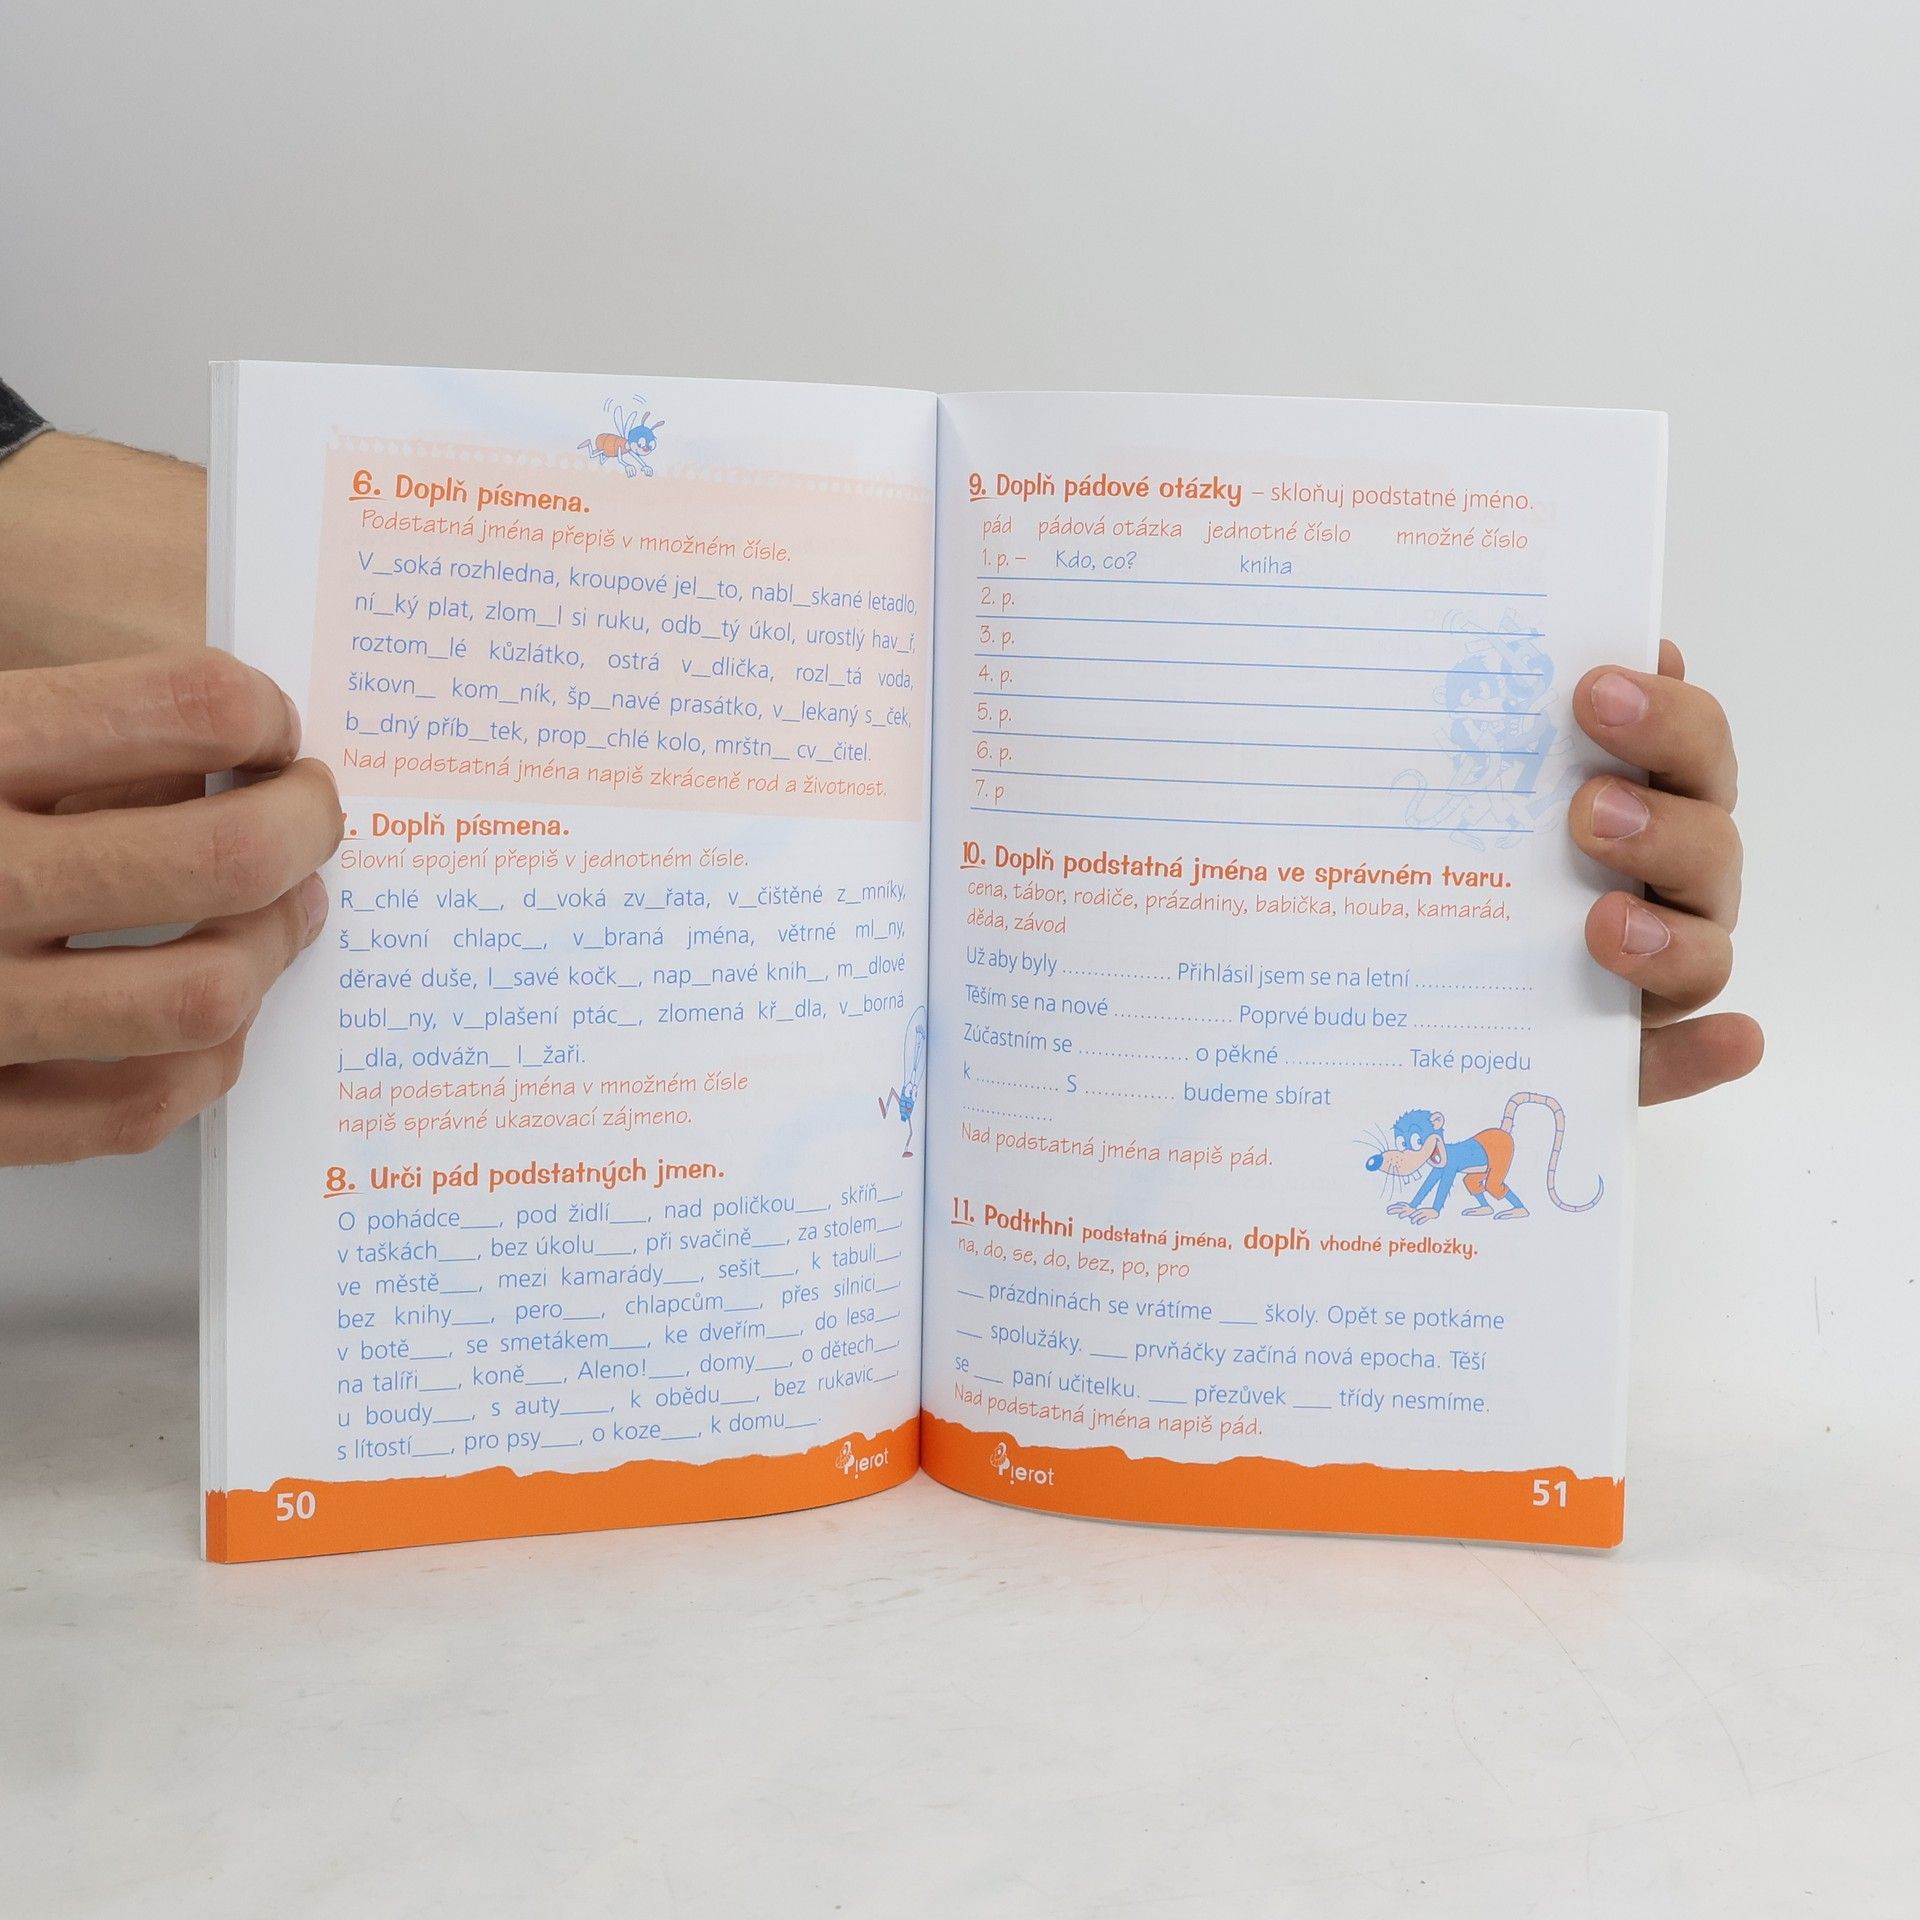 6. Doplň písmena.
Podstatná jména přepiš v množném čísle.
V__soká rozhledna, kroupové jel__to, nabl__skané letadlo,
ní__ký plat, zlom__l si ruku, odb__tý úkol, urostlý hav__ř,
roztom__lé kůzlátko, ostrá v__dlička, rozl__tá voda,
šikovn__ kom__ník, šp__navé prasátko, v__lekaný s__ček,
b__dný příb__tek, prop__chlé kolo, mrštn__ cv__čitel.
Nad podstatná jména napiš zkráceně rod a životnost.
. Doplň písmena.
Slovní spojení přepiš v jednotném čísle.
R__chlé vlak__, d__voká zv__řata, v__čištěné z__mníky,
š__kovní chlapc__, v__braná jména, větrné ml__ny,
děravé duše, l__savé kočk__, nap__navé knih__, m__dlové
bubl__ny, v__plašení ptác__, zlomená kř__dla, v__borná
j__dla, odvážn__ l__žaři.
Nad podstatná jména v množném čísle
napiš správné ukazovací zájmeno.
8. Urči pád podstatných jmen.
O pohádce___, pod židlí___, nad poličkou___, skříň___,
v taškách___, bez úkolu___, při svačině___, za stolem___,
ve městě___, mezi kamarády___, sešit___, k tabuli___,
bez knihy___, pero___, chlapcům___, přes silnici___,
v botě___, se smetákem___, ke dveřím___, do lesa___,
na talíři___, koně___, Aleno!___, domy___, o dětech___,
u boudy___, s auty____, k obědu___, bez rukavic___,
s lítostí___, pro psy___, o koze___, k domu___.
Pierot
50
9. Doplň pádové otázky – skloňuj podstatné jméno.
pád pádová otázka jednotné číslo množné číslo
1. p. – Kdo, co? kniha
2. p.
3. p.
4. p.
5. p.
6. p.
7. p
10. Doplň podstatná jména ve správném tvaru.
cena, tábor, rodiče, prázdniny, babička, houba, kamarád,
děda, závod
Už aby byly .................. Přihlásil jsem se na letní ...................
Těším se na nové .................... Poprvé budu bez ....................
Zúčastním se .................. o pěkné .................... Také pojedu
k .............. S ............... budeme sbírat
...............
Nad podstatná jména napiš pád.
11. Podtrhni podstatná jména, doplň vhodné předložky.
na, do, se, do, bez, po, pro
___ prázdninách se vrátíme ____ školy. Opět se potkáme
___ spolužáky. ____ prvňáčky začíná nová epocha. Těší
se ___ paní učitelku. ____ přezůvek ____ třídy nesmíme.
Nad podstatná jména napiš pád.
Pierot
51